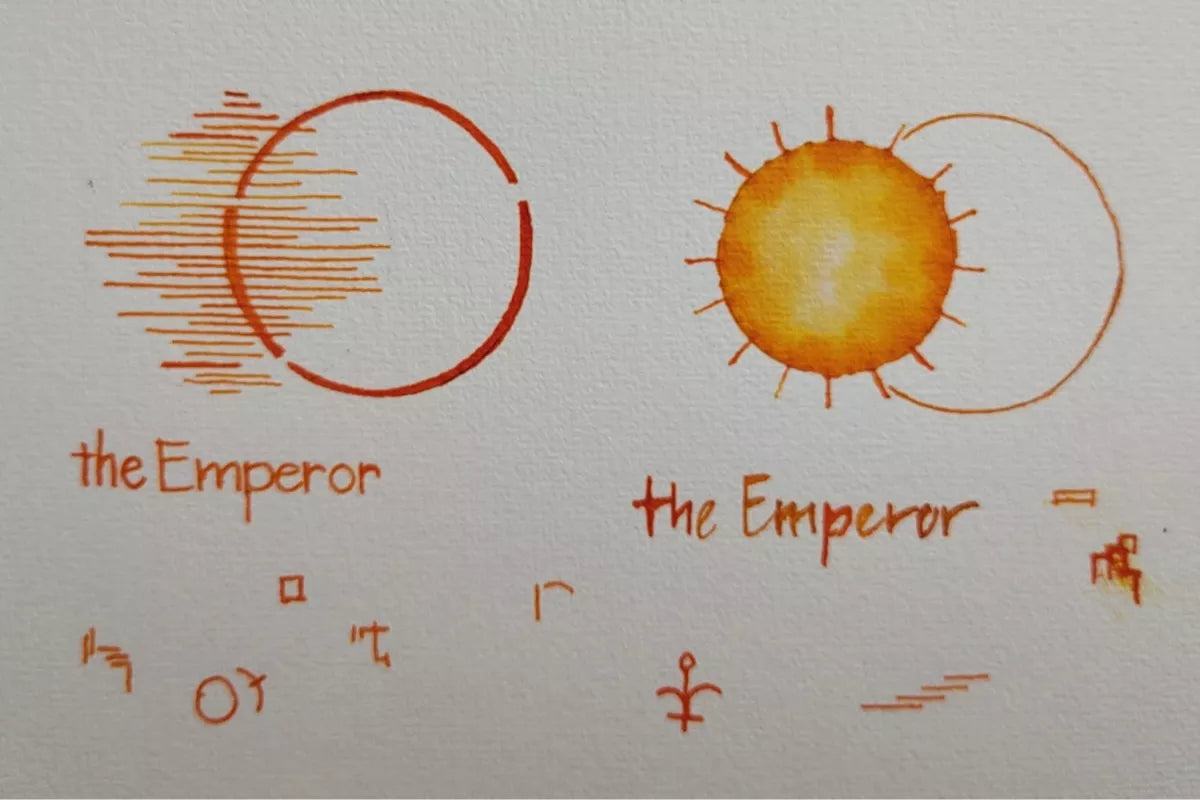 the Emperor
the Emperor